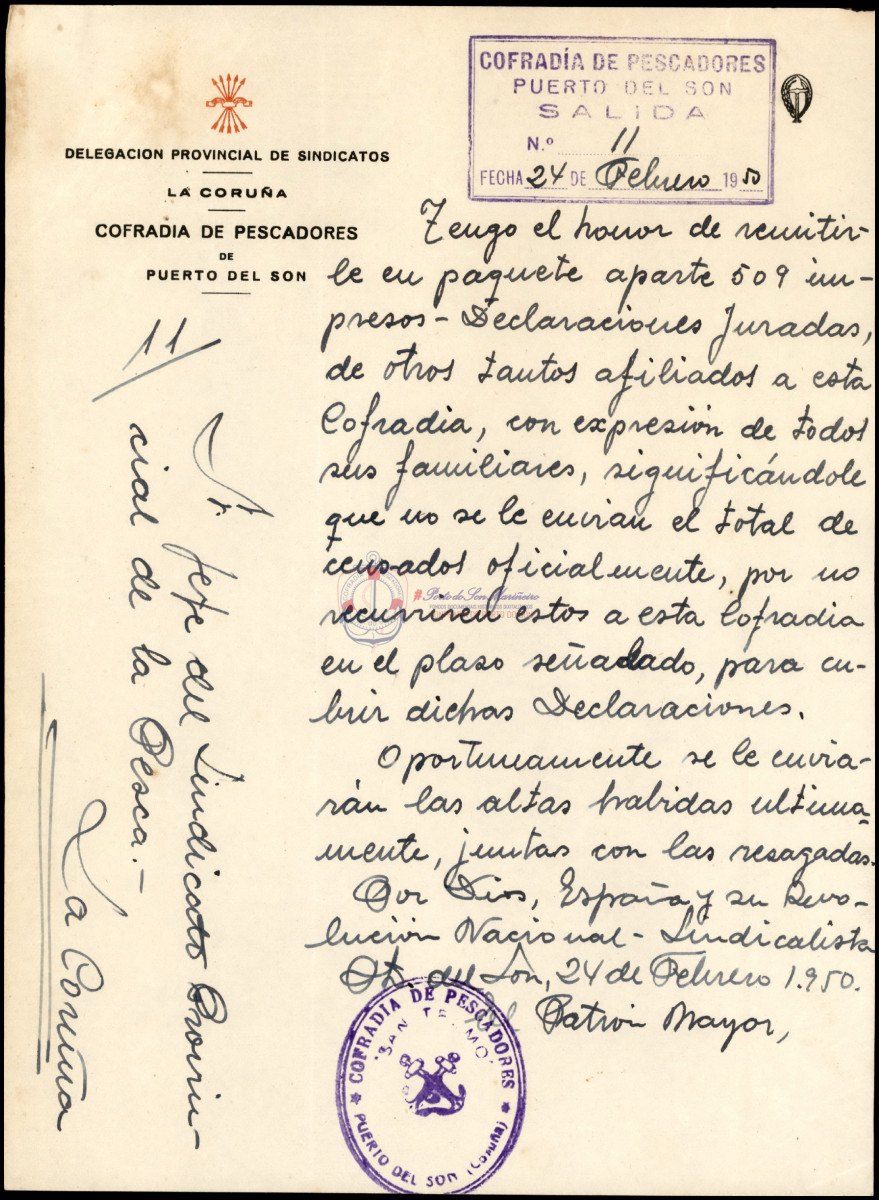 DELEGACION PROVINCIAL DE SINDICATOS
LA CORUÑA
COFRADIA DE PESCADORES
DE
PUERTO DEL SON
COFRADÍA DE PESCADORES
PUERTO DEL SON
SALIDA
N.º 11
FECHA 24 DE Febrero 1950
Tengo el honor de remitir-
le en paquete aparte 509 im-
presos - Declaraciones Juradas,
de otros tantos afiliados a esta
Cofradia, con expresión de todos
sus familiares, significándole
que no se le envian el total de
censados oficialmente, por no
recurriren estos a esta Cofradia
en el plaso señalado, para cu-
brir dichas Declaraciones.
Oportunamente se le envia-
rán las altas habidas ultima-
mente, juntas con las resagadas.
Por Dios, España y su Revo-
lución Nacional-Sindicalista
Pto. del Son, 24 de Febrero 1.950.
El Patrón Mayor,
11/
Sr. Jefe del Sindicato Provin-
cial de la Pesca.-
La Coruña
COFRADIA DE PESCADORES
"SAN TELMO"
PUERTO DEL SON (Coruña)
Porto do Son Mariñeiro